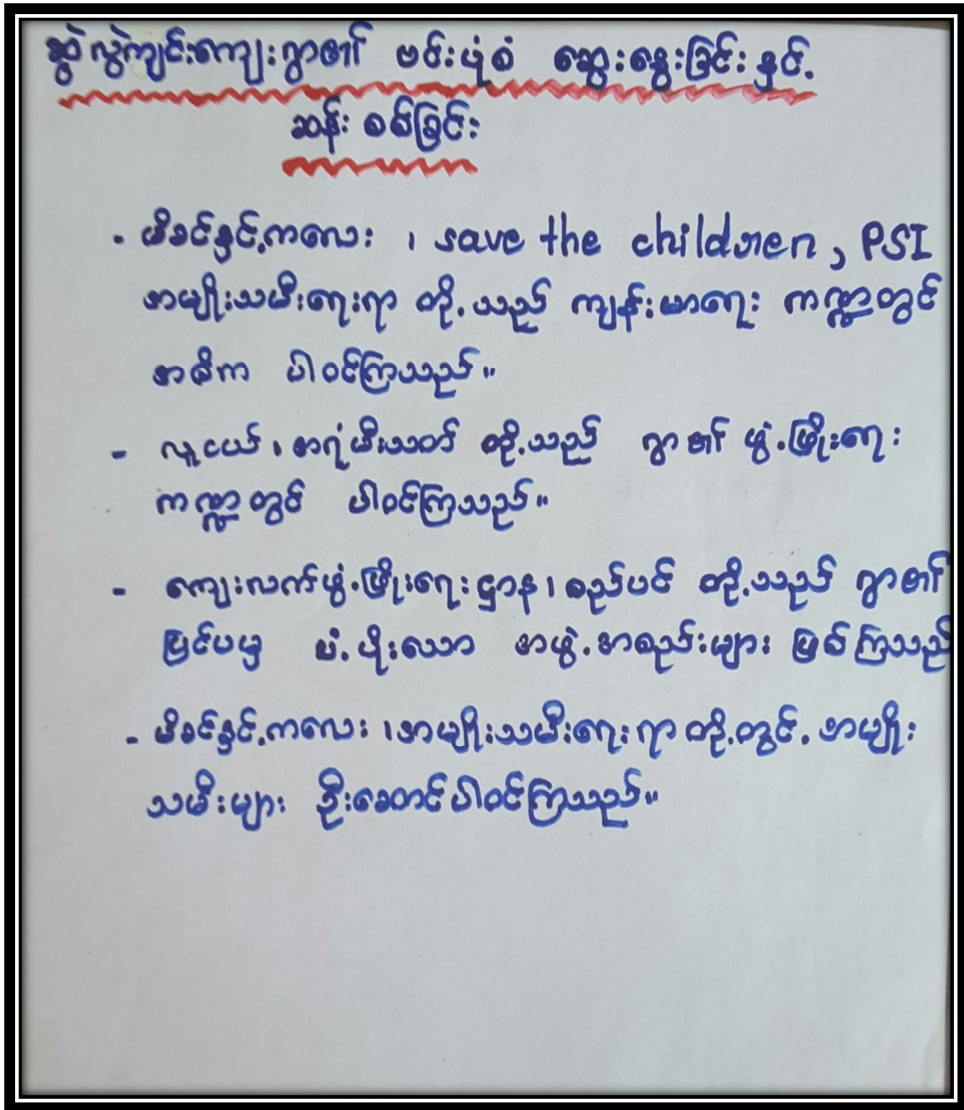 ဆွဲလွဲကျင်းကျေးရွာ၏ ဗင်းပုံစံ ဆွေးနွေးခြင်းနှင့်
ဆန်းစစ်ခြင်း
- မိခင်နှင့်ကလေး ၊ save the children, PSI
အမျိုးသမီးရေးရာ တို့သည် ကျန်းမာရေး ကဏ္ဍတွင်
အဓိက ပါဝင်ကြသည်။
- လူငယ်၊ အရံမီးသတ် တို့သည် ရွာ၏ ဖွံ့ဖြိုးရေး
ကဏ္ဍတွင် ပါဝင်ကြသည်။
- ကျေးလက်ဖွံ့ဖြိုးရေးဌာန၊ စည်ပင် တို့သည် ရွာ၏
ပြင်ပမှ ပံ့ပိုးသော အဖွဲ့အစည်းများ ဖြစ်ကြသည်
- မိခင်နှင့်ကလေး ၊အမျိုးသမီးရေးရာ တို့တွင် အမျိုး
သမီးများ ဦးဆောင်ပါဝင်ကြသည်။